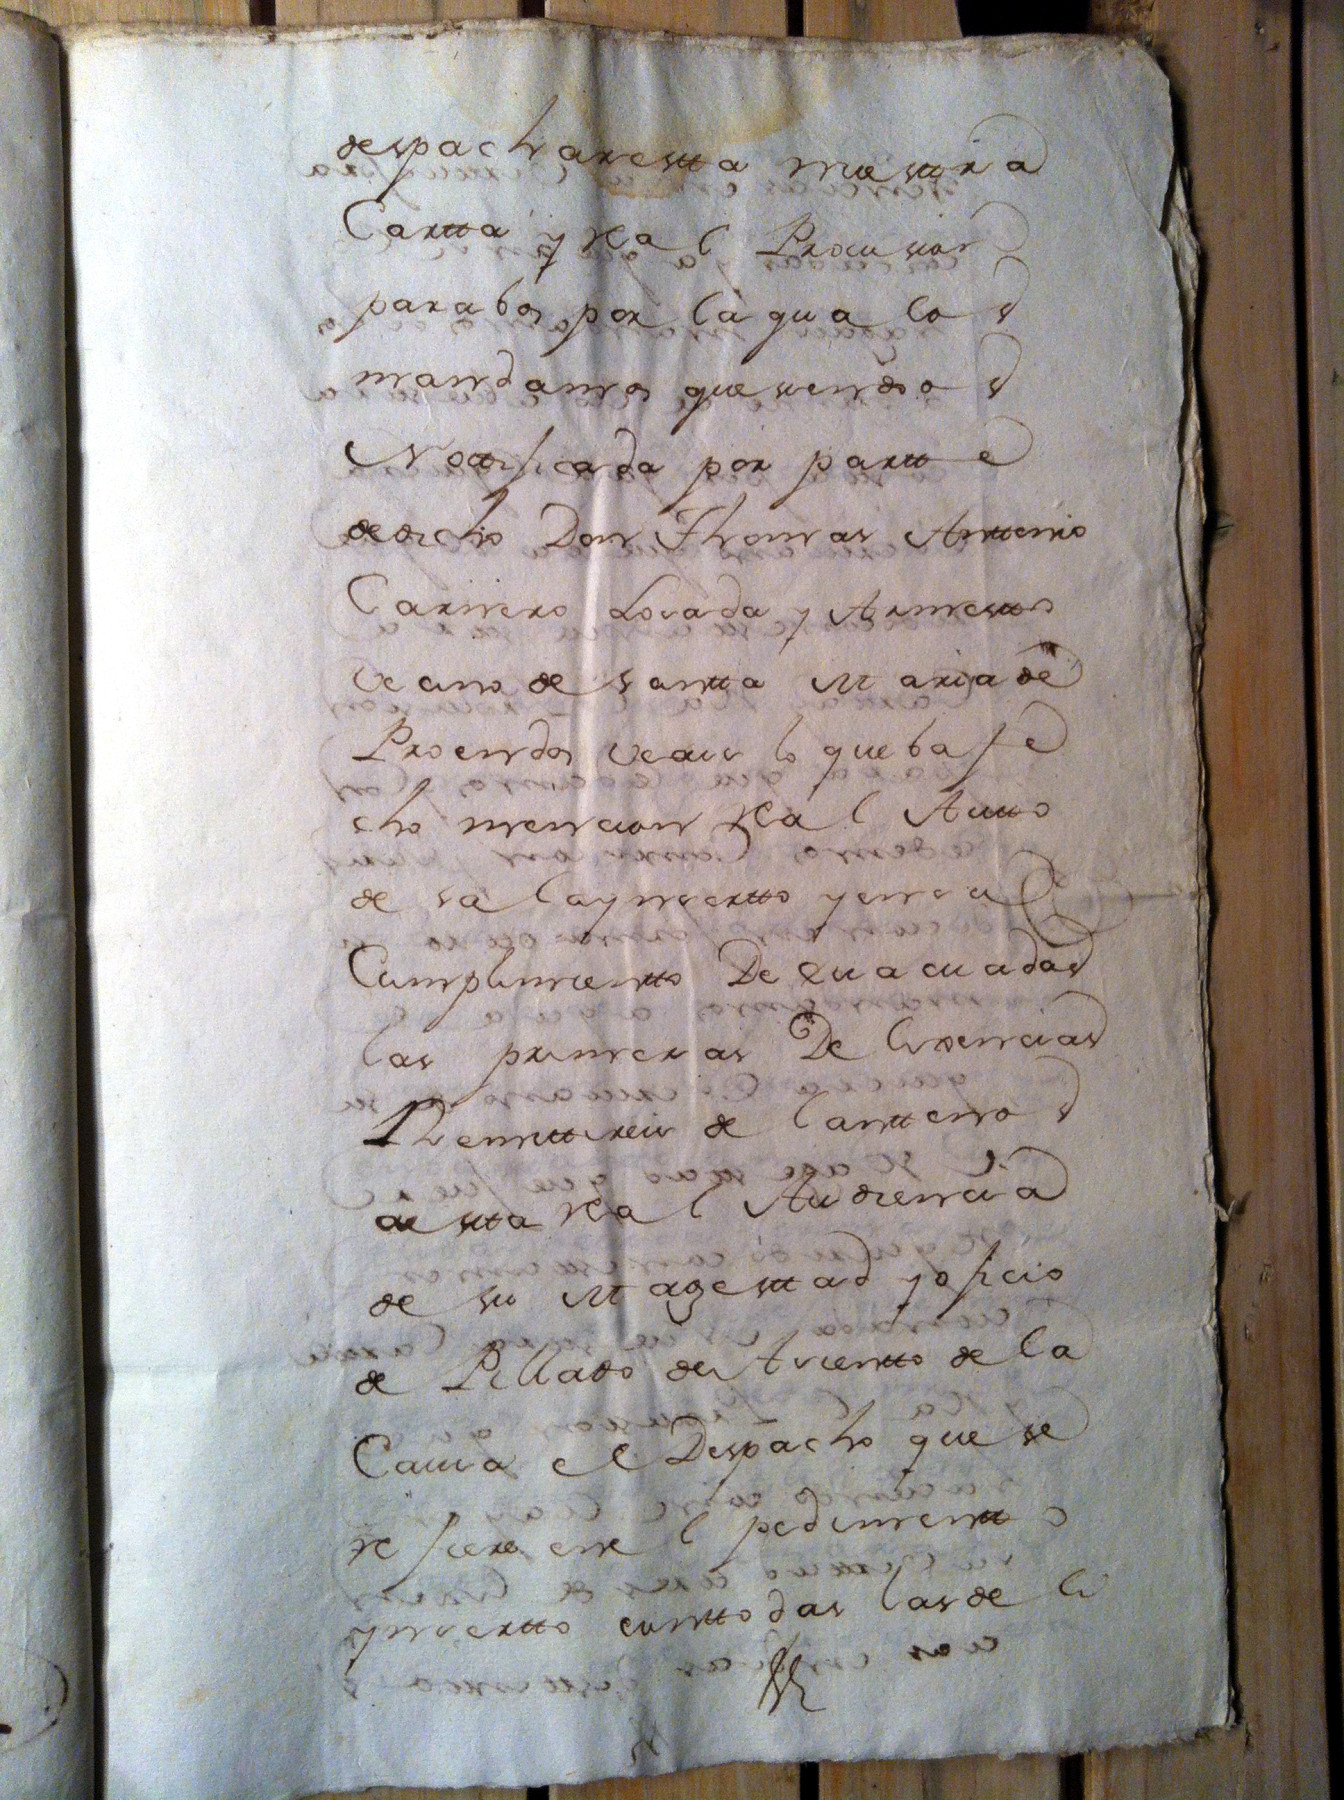 despacharestta nuesttra
Cartta y Real Provision
parabos por la qua lo
mandamos que siendo
Nottificada por partte
dedicho Don Thomas Anttonio
Carnero Losada y Armestto
Vecino de Santta Maria de
Proendos veais lo que ba fe
cho mencion Real Autto
de sala ynserto y en su
Cumplimientto De Evacuadas
las primeras Delixencias
Remittireis de lantteno
a estta Real Audiencia
de su Magesttad y oficio
de Pillado de Asientto de la
Causa el Despacho que se
refiere en el pedimentto
ynsertto cunttodas las de li